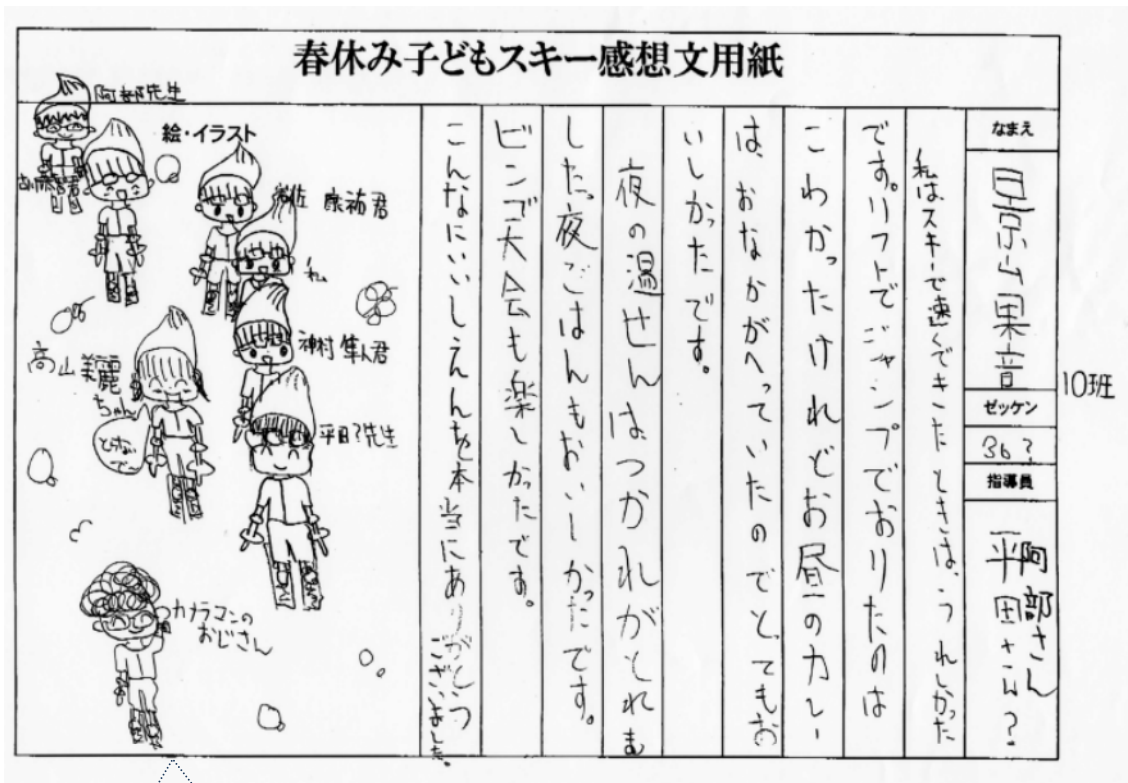 春休み子どもスキー感想文用紙
なまえ
果音
ゼッケン
36?
指導員
阿部さん
平田さん?
10班
私はスキーで速くできたときは、うれしかった
です。リフトでジャンプでおりたのは
こわかったけれどお昼のカレー
は、おなかがへっていたのでとってもお
いしかったです。
夜の温せんはつかれがとれま
した。夜ごはんもおいしかったです。
ビンゴ大会も楽しかったです。
こんなにいいしえんを本当にありがとう
ございました。
絵・イラスト
阿部先生
康祐君
私
神村隼人君
高山美麗
ちゃん
平田?先生
カナラマンの
おじさん